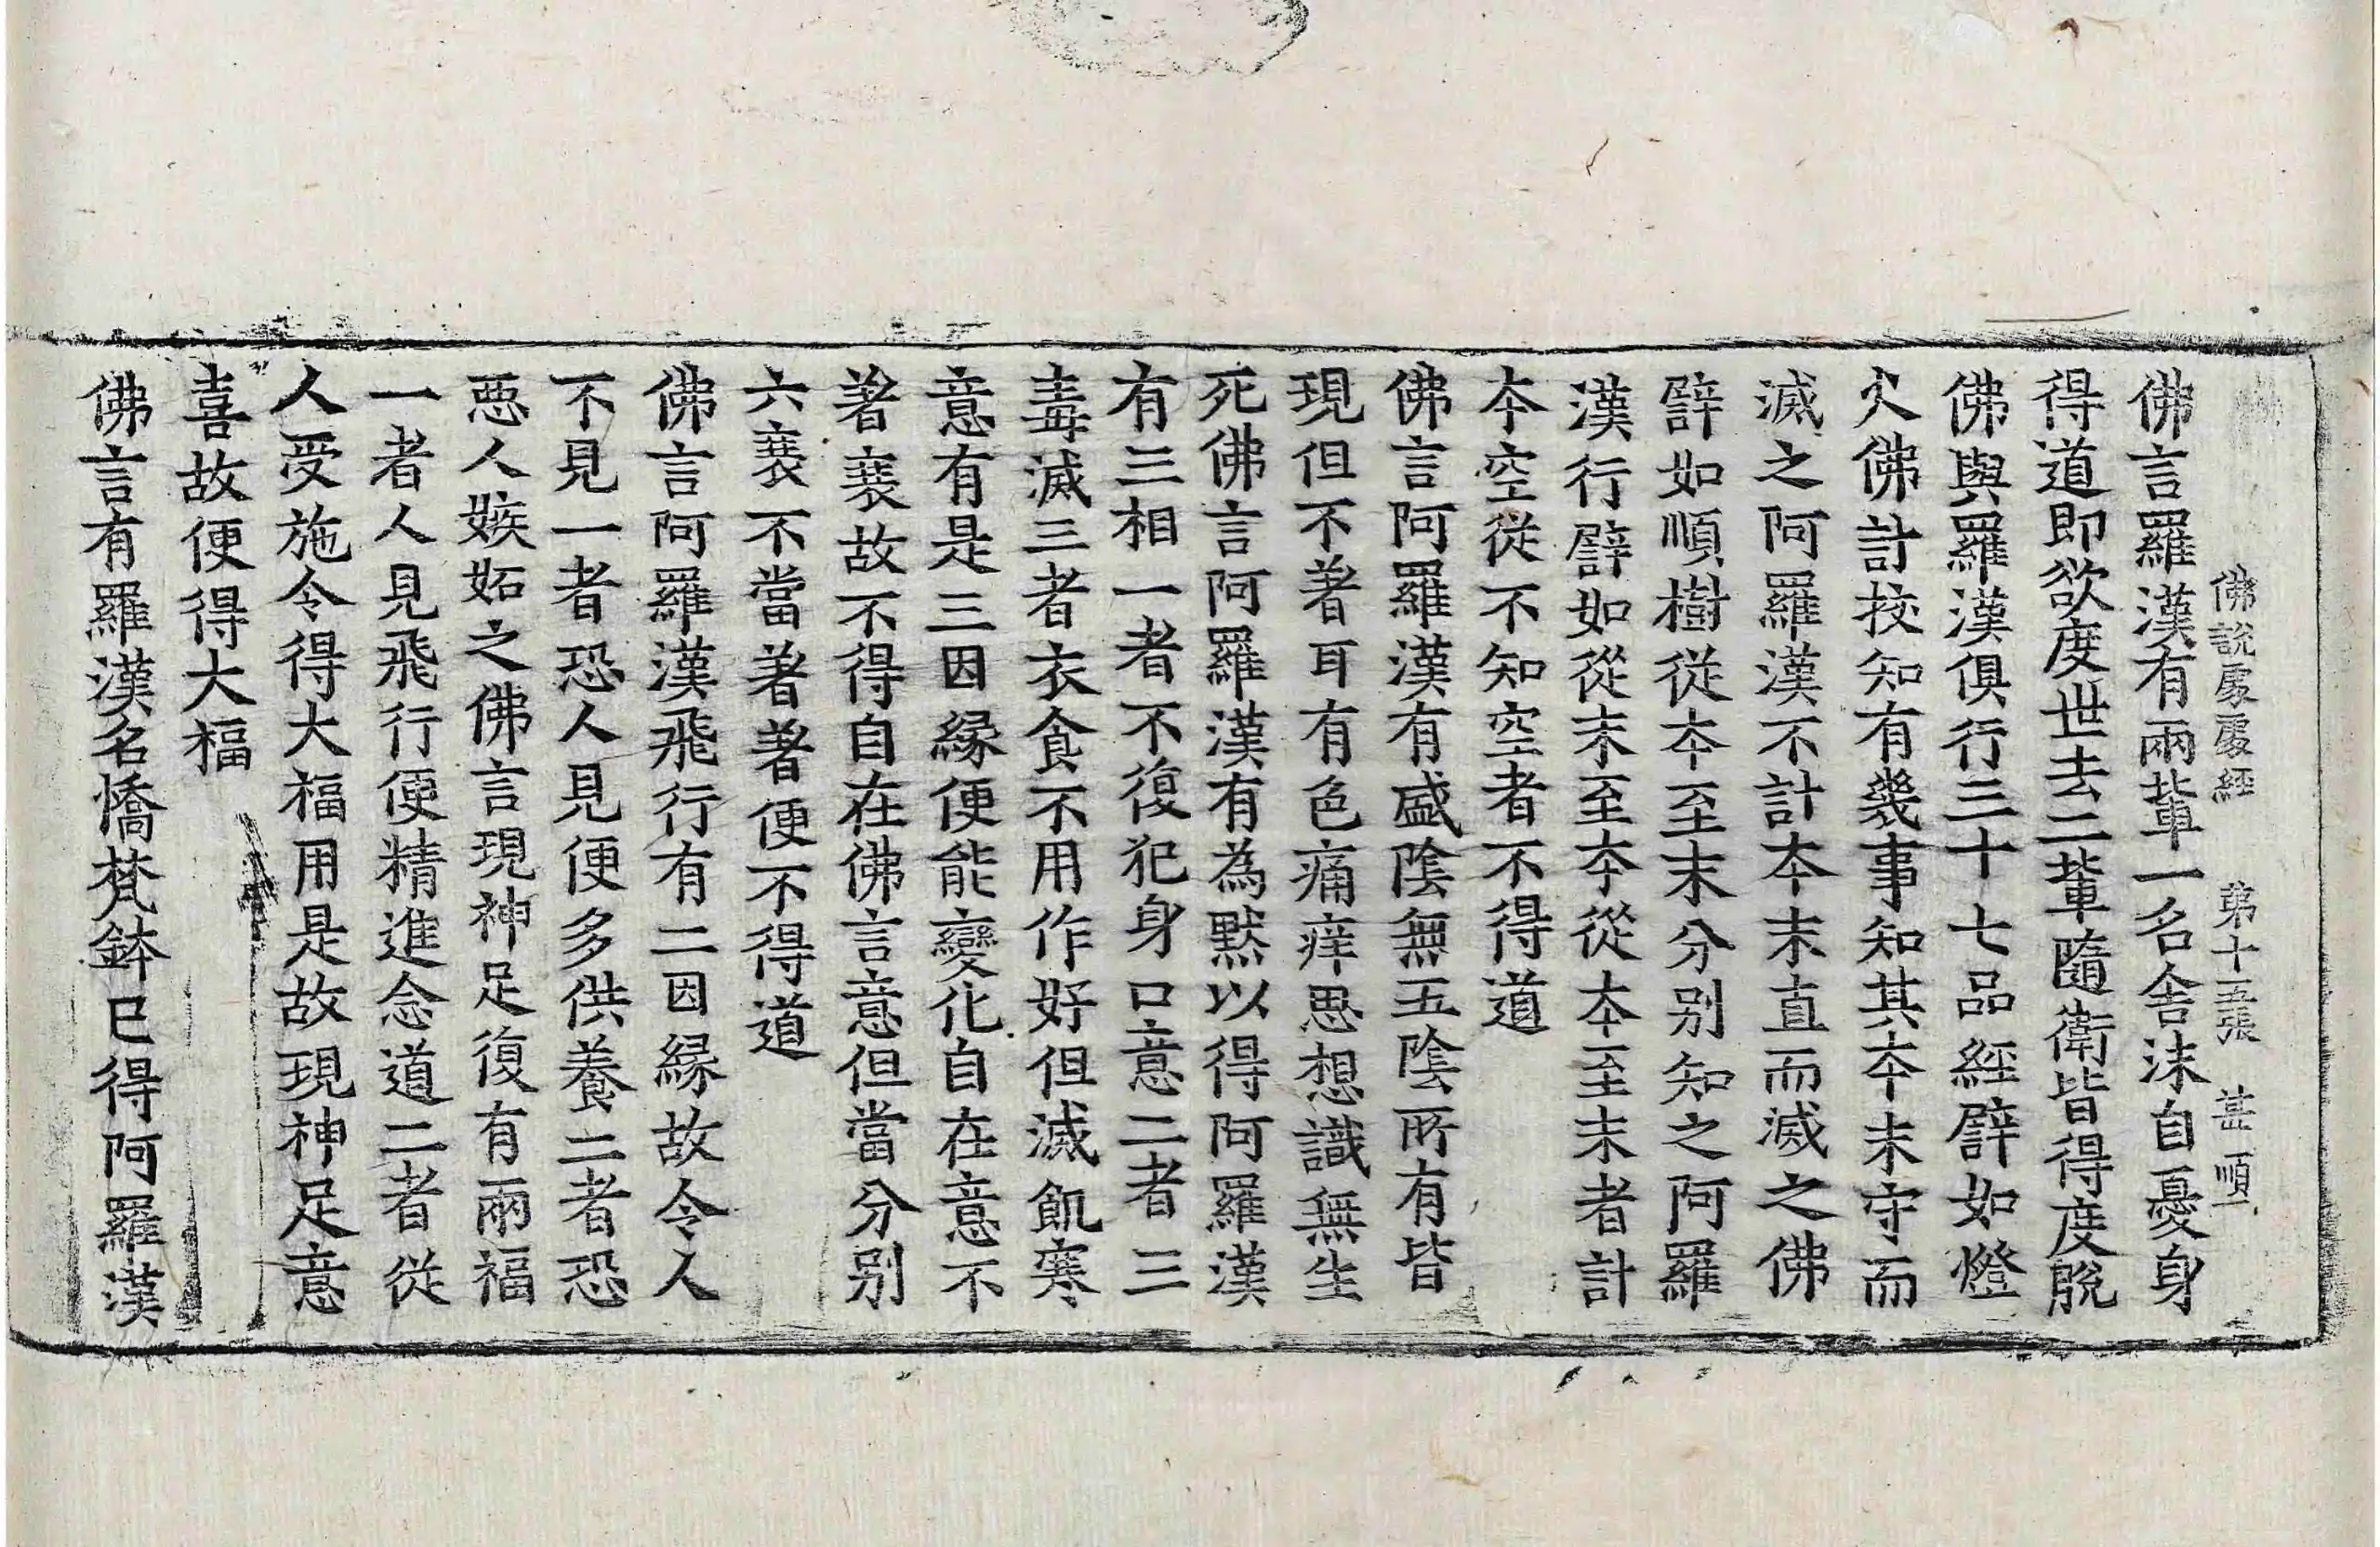 佛說處處經 第十五張 甚 順一
佛言羅漢有兩輩一名舍沫自憂身
得道即欲度世去二輩隨衛皆得度脫
佛與羅漢俱行三十七品經譬如燈
火佛計挍知有幾事知其夲末守而
滅之阿羅漢不計夲末直而滅之佛
譬如順樹從夲至末分別知之阿羅
漢行譬如從末至夲從夲至末者計
夲空從不知空者不得道
佛言阿羅漢有盛陰無五陰所有皆
現但不著耳有色痛痒思想識無生
死佛言阿羅漢有為默以得阿羅漢
有三相一者不復犯身口意二者三
毒滅三者衣食不用作好但滅飢寒
意有是三因緣便能變化自在意不
著衰故不得自在佛言意但當分別
六衰不當著著便不得道
佛言阿羅漢飛行有二因緣故令人
不見一者恐人見便多供養二者恐
惡人嫉妬之佛言現神足復有兩福
一者人見飛行便精進念道二者從
人受施令得大福用是故現神足意
喜故便得大福
佛言有羅漢名憍梵鉢已得阿羅漢